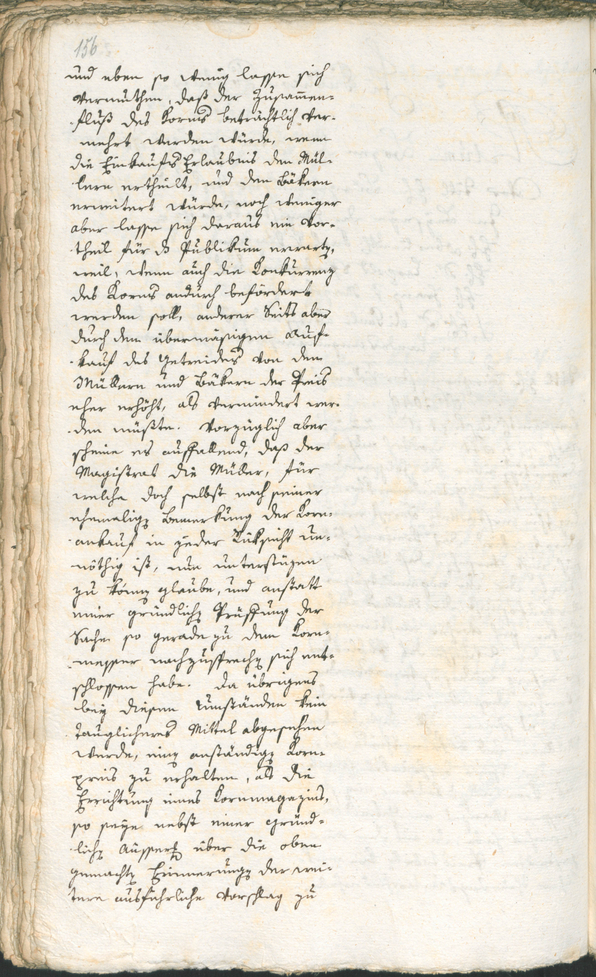 156
und eben so wenig lasse sich
vermuthen, daß der Zusammen-
fluß des Korns beträchtlich ver-
mehrt werden würde, wenn
die Einkaufs Erlaubnis den Mül-
lern ertheilt, und den Bäkern
erweitert würde, noch weniger
aber lasse sich daraus ein Vor-
theil für das Publikum erwarten,
weil, wenn auch die Konkurrenz
des Korns andurch befördert
werden soll, anderer Seits aber
durch den übermäsigen Auf-
kauf des Getreides von den
Müllern und Bäkern der Preis
eher erhöht, als vermindert wer-
den müßte. Vorzüglich aber
scheine es auffallend, daß der
Magistrat die Müller, für
welche doch selbst nach seiner
ehemaligen Bemerkung der Korn-
ankauf in jeder Rüksicht un-
nöthig ist, nun unterstüzen
zu können glaube, und anstatt
einer gründlichen Prüffung der
Sache so gerade zu dem Korn-
messer nachzusprechen sich ent-
schlossen habe. Da übrigens
bey diesen Umständen kein
tauglicheres Mittel abgesehen
werde, einen anständigen Korn-
preis zu erhalten, als die
Errichtung eines Kornmagazins,
so seye nebst einer gründ-
lichen Äusserung über die oben
gemachten Erinnerungen der wei-
tere ausführliche Vorschlag zu